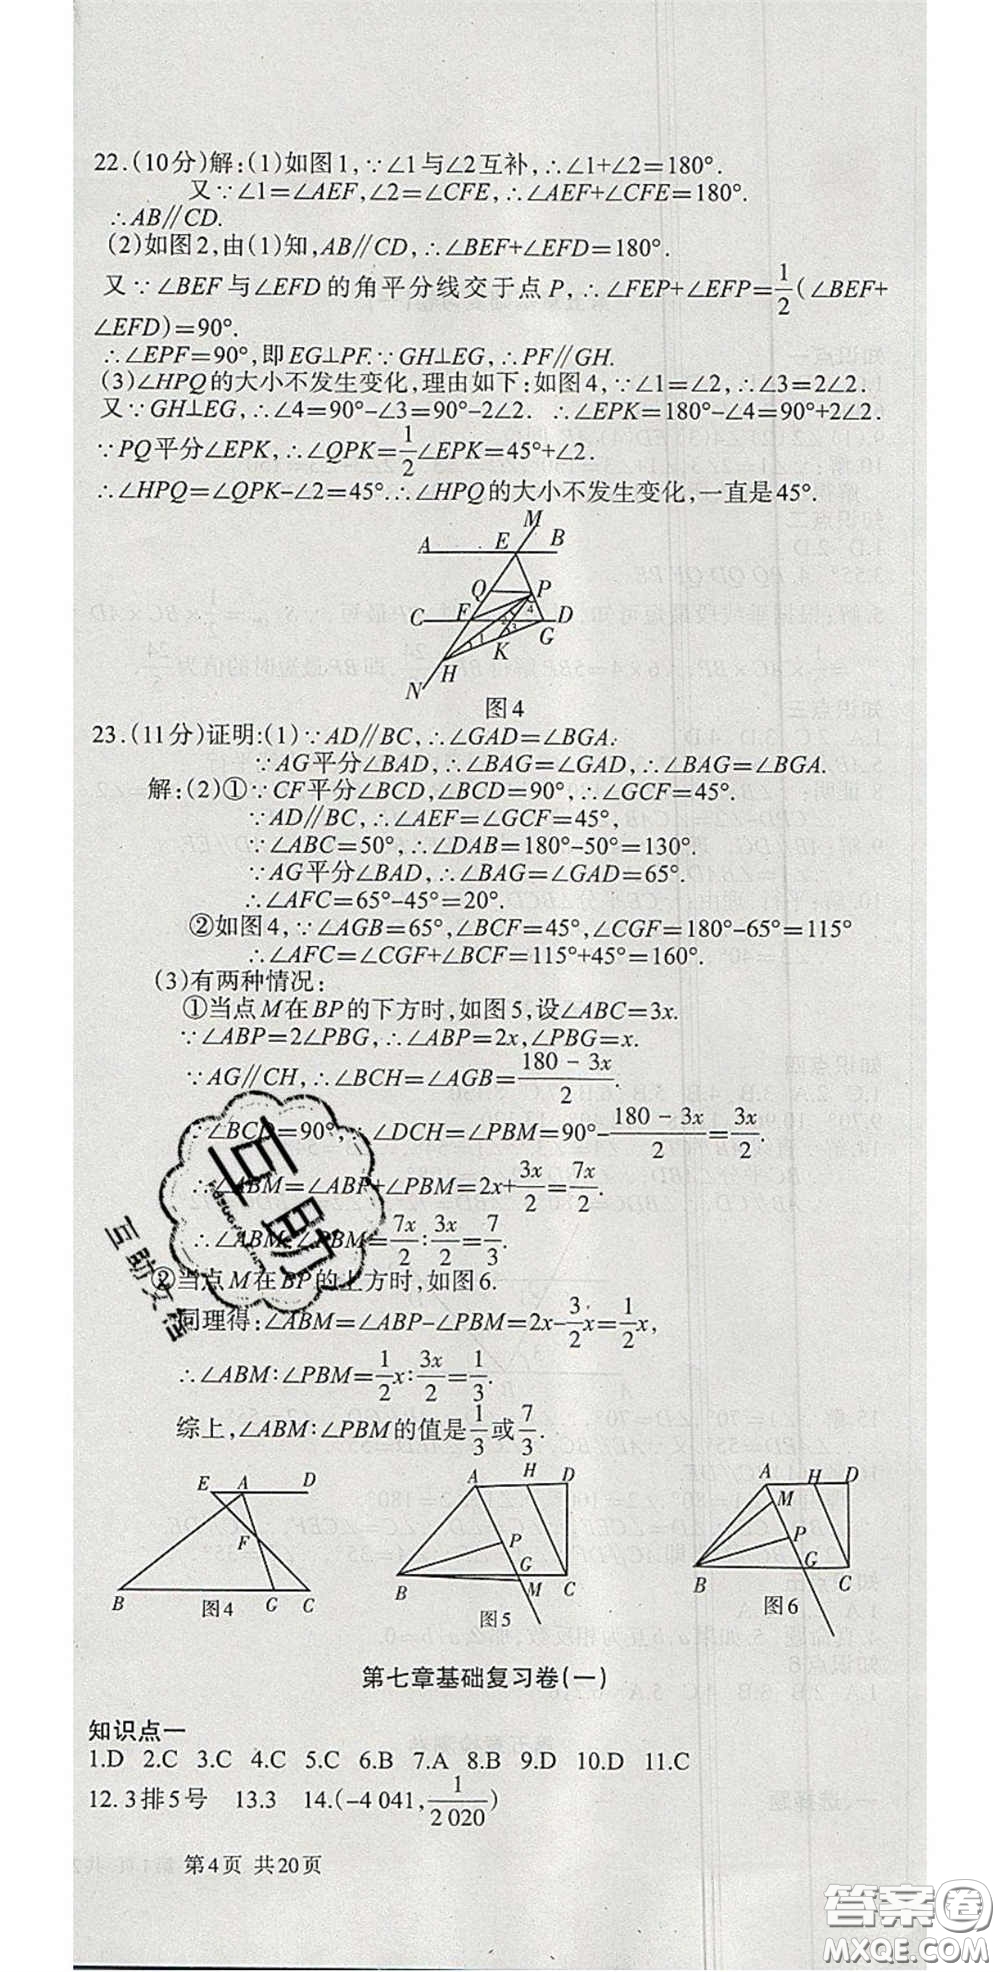 22.(10分)解:(1)如图1,∵∠1与∠2互补,∴∠1+∠2=180°.
又∵∠1=∠AEF,∠2=∠CFE,∴∠AEF+∠CFE=180°.
∴AB∥CD.
(2)如图2,由(1)知,AB∥CD,∴∠BEF+∠EFD=180°.
又∵∠BEF与∠EFD的角平分线交于点P,∴∠FEP+∠EFP=1/2(∠BEF+
∠EFD)=90°.
∴∠EPF=90°,即EG⊥PF.∵GH⊥EG,∴PF∥GH.
(3)∠HPQ的大小不发生变化,理由如下:如图4,∵∠1=∠2,∴∠3=2∠2.
又∵GH⊥EG,∴∠4=90°-∠3=90°-2∠2. ∴∠EPK=180°-∠4=90°+2∠2.
∵PQ平分∠EPK,∴∠QPK=1/2∠EPK=45°+∠2.
∴∠HPQ=∠QPK-∠2=45°.∴∠HPQ的大小不发生变化,一直是45°.
M
A E B
Q P
4
C F 2 D
3 G
1 K
H
N
图4
23.(11分)证明:(1)∵AD∥BC,∴∠GAD=∠BGA.
∵AG平分∠BAD,∴∠BAG=∠GAD,∴∠BAG=∠BGA.
解:(2)①∵CF平分∠BCD,∠BCD=90°,∴∠GCF=45°.
∵AD∥BC,∴∠AEF=∠GCF=45°,
∵∠ABC=50°,∴∠DAB=180°-50°=130°.
∵AG平分∠BAD,∴∠BAG=∠GAD=65°.
∴∠AFC=65°-45°=20°.
②如图4,∵∠AGB=65°,∠BCF=45°,∠CGF=180°-65°=115°
∴∠AFC=∠CGF+∠BCF=115°+45°=160°.
(3)有两种情况:
①当点M在BP的下方时,如图5,设∠ABC=3x.
∵∠ABP=2∠PBG,∴∠ABP=2x,∠PBG=x.
∵AG∥CH,∴∠BCH=∠AGB=(180-3x)/2.
∵∠BCD=90°,∴∠DCH=∠PBM=90°-(180-3x)/2=3x/2.
∴∠ABM=∠ABP+∠PBM=2x+3x/2=7x/2.
∴∠ABM∶∠PBM=7x/2∶3x/2=7/3.
②当点M在BP的上方时,如图6.
同理得:∠ABM=∠ABP-∠PBM=2x-3/2x=1/2x,
∴∠ABM∶∠PBM=1/2x∶3x/2=1/3.
综上,∠ABM∶∠PBM的值是1/3或7/3.
E A D
F
B G C
图4
A H D
P
G
B M C
图5
A H D
M
P
B G C
图6
第七章基础复习卷(一)
知识点一
1.D 2.C 3.C 4.C 5.C 6.B 7.A 8.B 9.D 10.D 11.C
12.3排5号 13.3 14.(-4 041,1/2 020)
第4页 共20页
互助
互助文档
答案圈
MXQE.COM